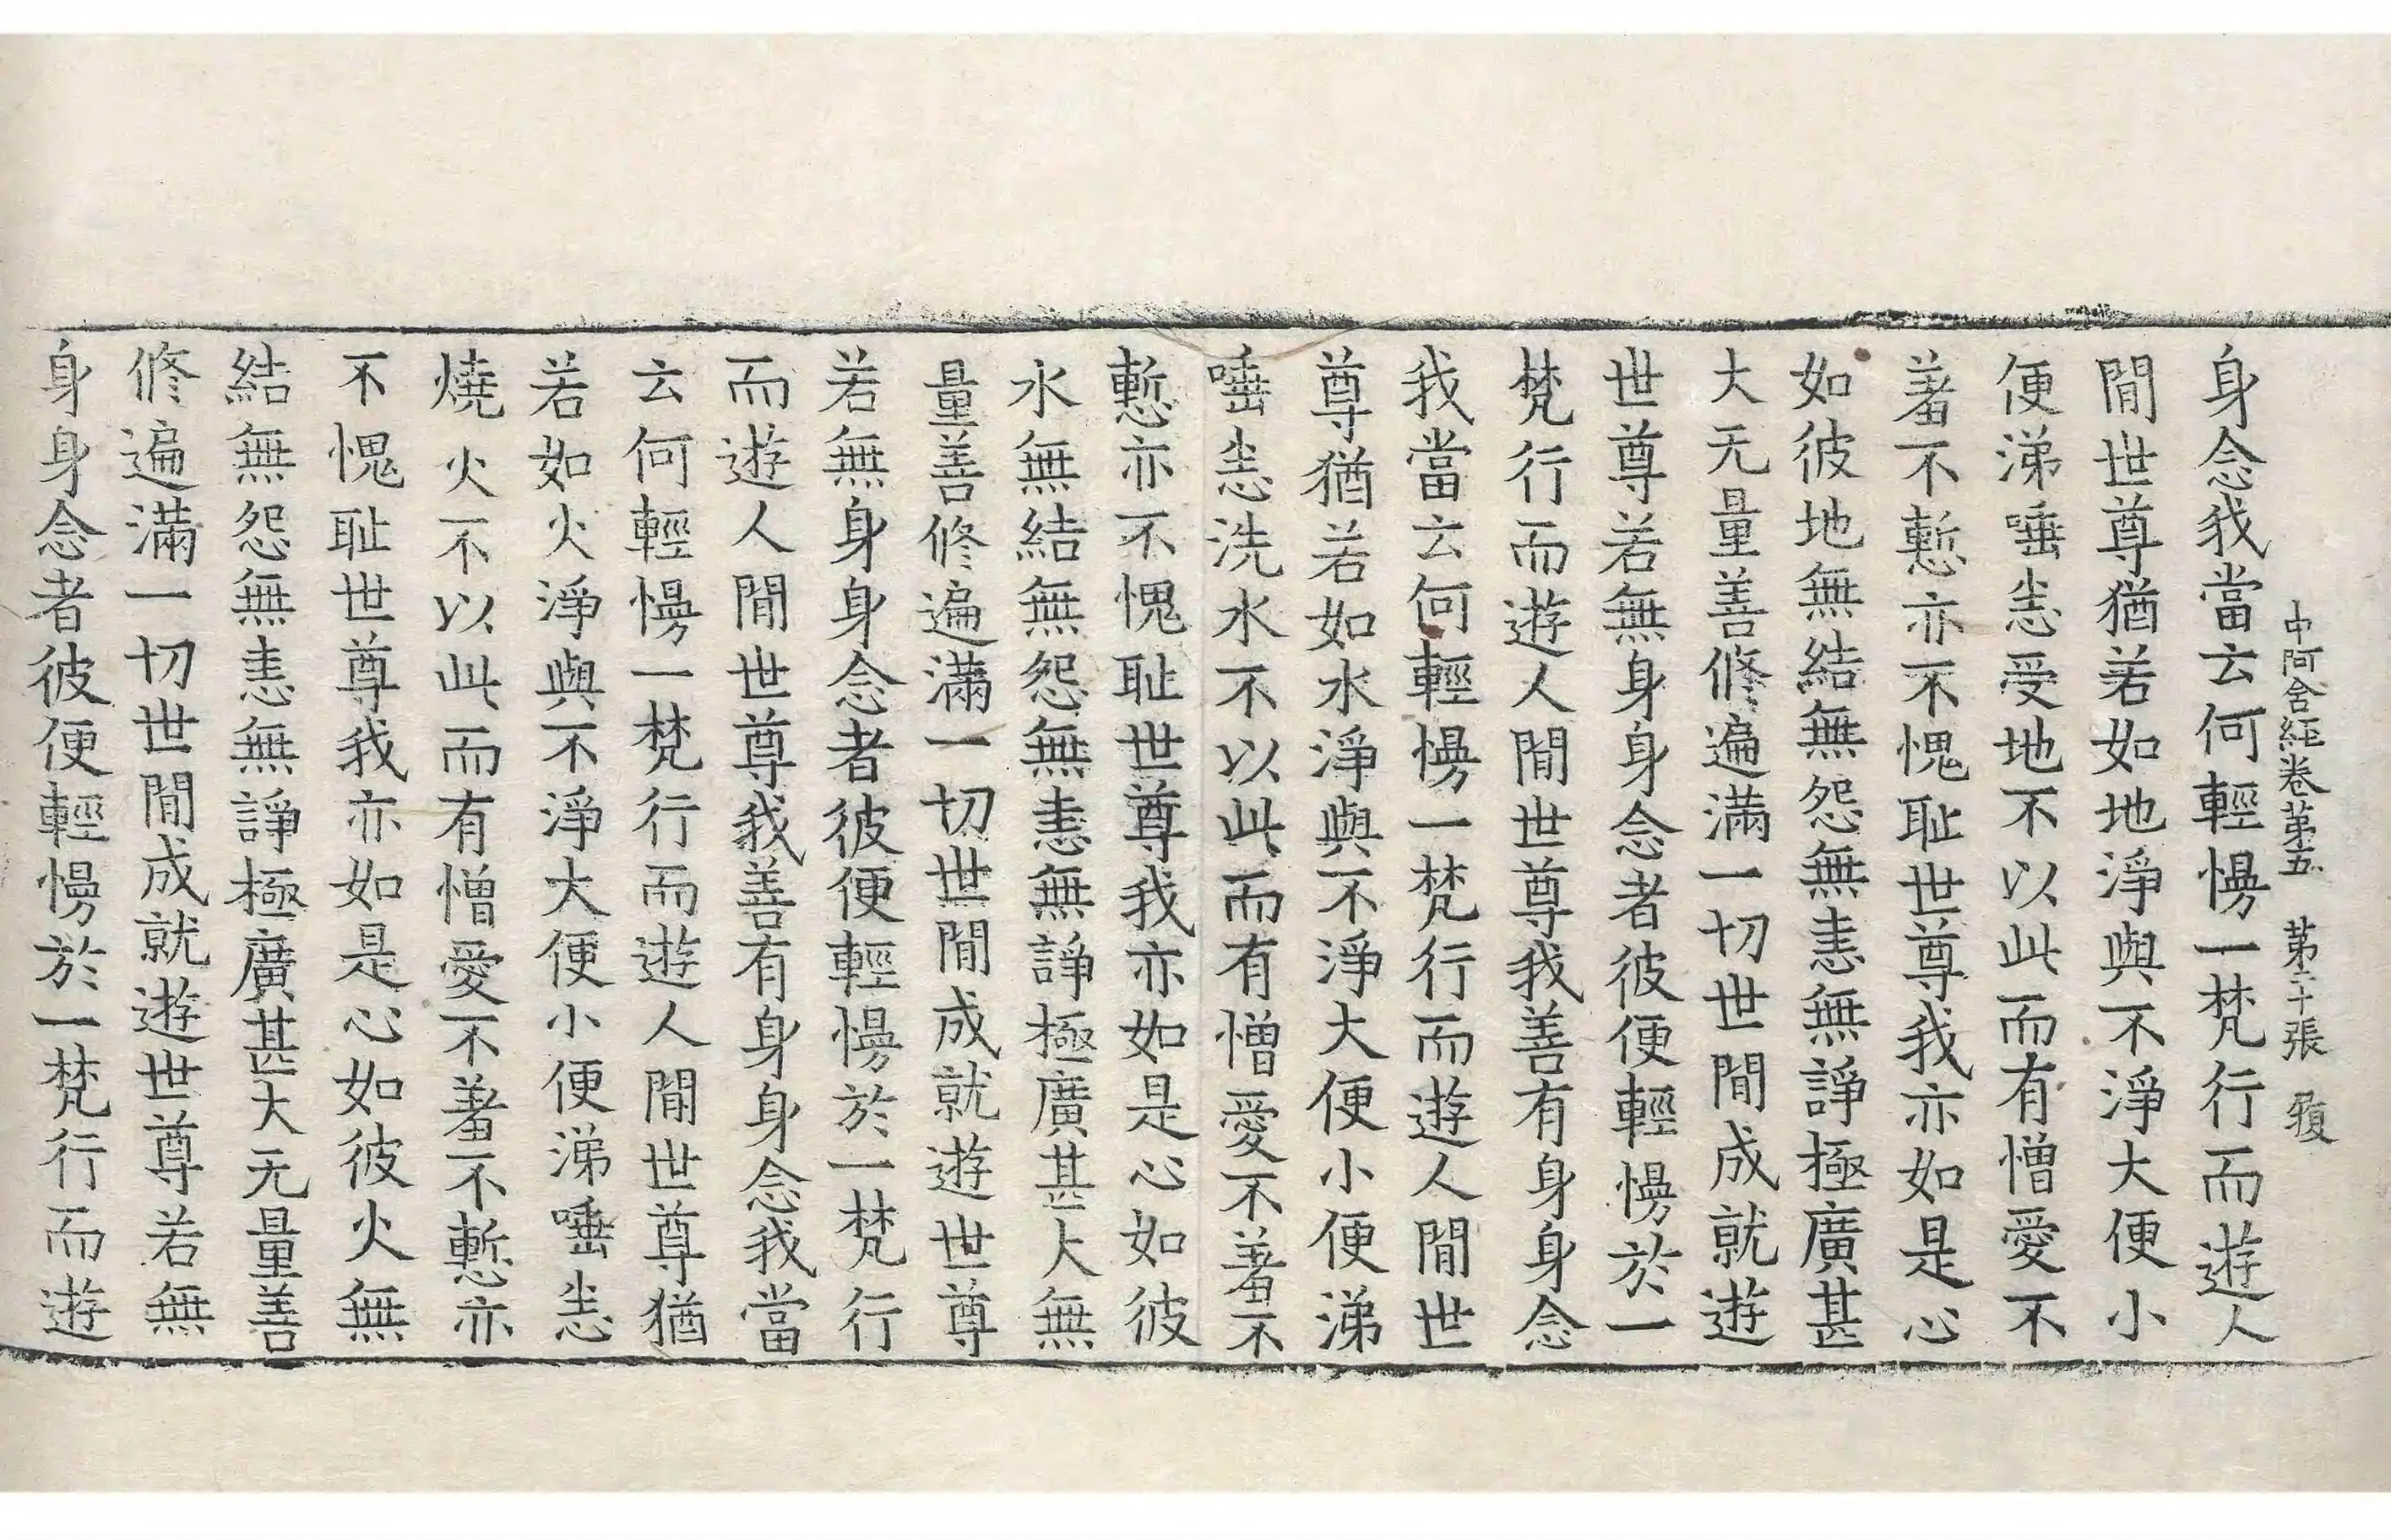 中阿含經卷苐五 苐二十張 㝮
身念我當云何輕慢一梵行而遊人
閒世尊猶若如地淨與不淨大便小
便涕唾恚受地不以此而有憎愛不
著不慙亦不愧恥世尊我亦如是心
如彼地無結無怨無恚無諍極廣甚
大无量善修遍滿一切世閒成就遊
世尊若無身身念者彼便輕慢於一
梵行而遊人閒世尊我善有身身念
我當云何輕慢一梵行而遊人閒世
尊猶若如水淨與不淨大便小便涕
唾恚洗水不以此而有憎愛不著不
慙亦不愧恥世尊我亦如是心如彼
水無結無怨無恚無諍極廣甚大無
量善修遍滿一切世閒成就遊世尊
若無身身念者彼便輕慢於一梵行
而遊人閒世尊我善有身身念我當
云何輕慢一梵行而遊人閒世尊猶
若如火淨與不淨大便小便涕唾恚
燒火不以此而有憎愛不著不慙亦
不愧恥世尊我亦如是心如彼火無
結無怨無恚無諍極廣甚大无量善
修遍滿一切世閒成就遊世尊若無
身身念者彼便輕慢於一梵行而遊